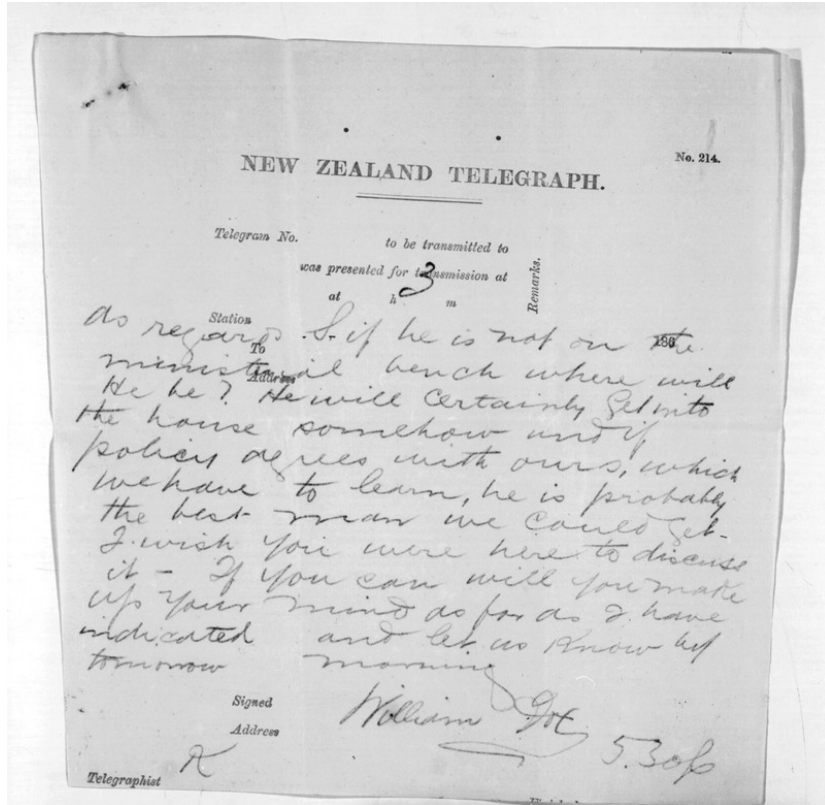 No. 214.
NEW ZEALAND TELEGRAPH.
Telegram No. to be transmitted to
was presented for transmission at
at h 3 m
Remarks.
Station
To
Address
186
as regards S. if he is not on the
ministerial bench where will
He be? He will certainly get into
the house somehow and if
policy agrees with ours, which
we have to learn, he is probably
the best man we could get.
I wish you were here to discuss
it - If you can will you make
up your mind as far as I have
indicated and let us know by
tomorrow morning
Signed William Fox
Address
5.30p
Telegraphist R